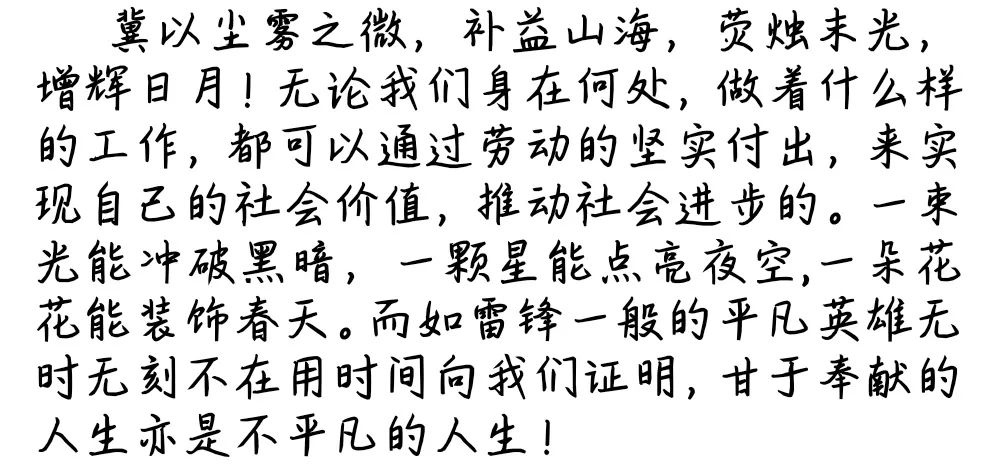 冀以尘雾之微，补益山海，荧烛末光，
增辉日月！无论我们身在何处，做着什么样
的工作，都可以通过劳动的坚实付出，来实
现自己的社会价值，推动社会进步的。一束
光能冲破黑暗，一颗星能点亮夜空，一朵花
花能装饰春天。而如雷锋一般的平凡英雄无
时无刻不在用时间向我们证明，甘于奉献的
人生亦是不平凡的人生！